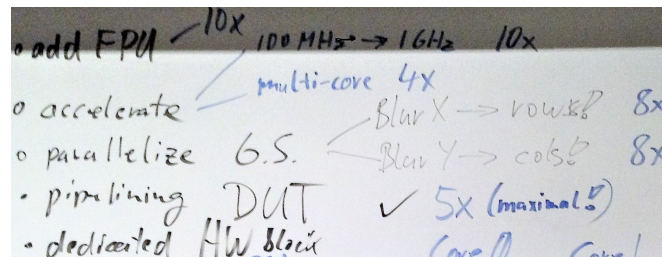 • add FPU — 10x
100 MHz → 1 GHz 10x
multi-core 4x
o accelerate
Blur X → rows! 8x
o parallelize G.S.
Blur Y → cols! 8x
• pipelining DUT ✓ 5x (maximal!)
• dedicated HW Block